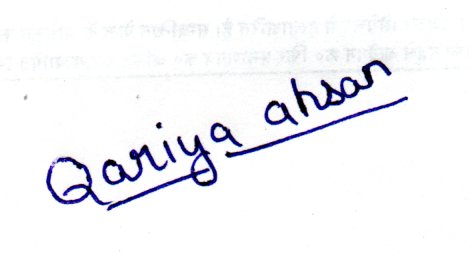 Qariya ahsan